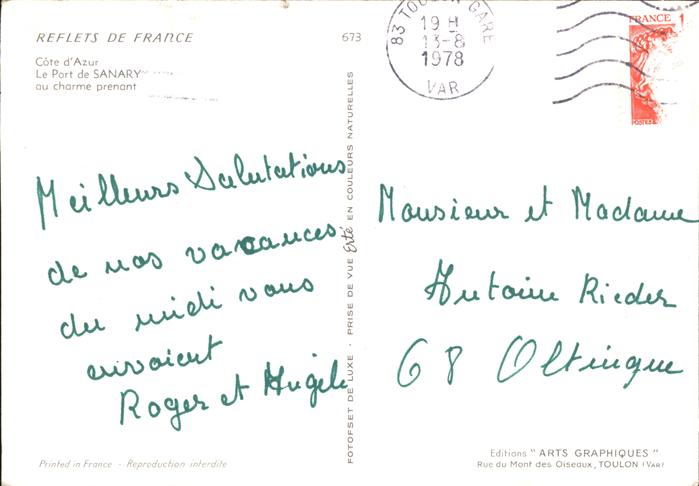 REFLETS DE FRANCE
673
Côte d'Azur
Le Port de SANARY
au charme prenant
83 TOULON GARE
19 H
13-8
1978
VAR
FRANCE 1
POSTES
Meilleurs Salutations
de nos vacances
du midi vous
envoient
Roger et Angèle
FOTOFSET DE LUXE · PRISE DE VUE Erté EN COULEURS NATURELLES
Monsieur et Madame
Antoine Rieder
68 Oltingue
Printed in France - Reproduction interdite
Editions "ARTS GRAPHIQUES"
Rue du Mont des Oiseaux, TOULON (VAR)